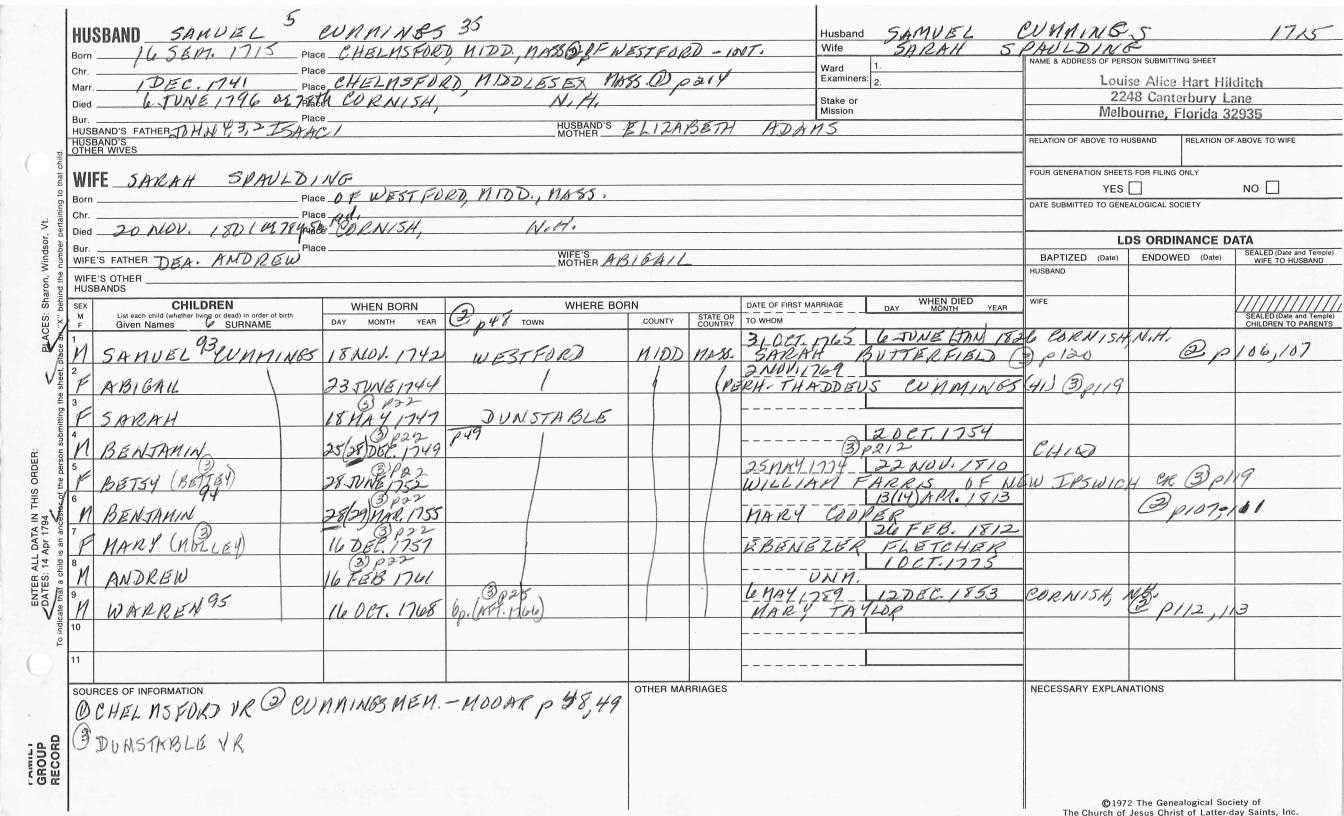 HUSBAND SAMUEL 5 CUMMINGS 35
Born 16 SEPT. 1715 Place CHELMSFORD, MIDD, MASS. ② OF WESTFORD - INT.
Chr. Place
Marr. 1 DEC. 1741 Place CHELMSFORD, MIDDLESEX MASS. ① p214
Died 6 JUNE 1796 Place CORNISH, N.H.
Bur. Place
HUSBAND'S FATHER JOHN 4, 3, 2 ISAAC 1 HUSBAND'S MOTHER ELIZABETH ADAMS
HUSBAND'S OTHER WIVES
WIFE SARAH SPAULDING
Born Place OF WESTFORD, MIDD., MASS.
Chr. Place
Died 20 NOV. 1801 Place CORNISH, N.H.
Bur. Place
WIFE'S FATHER DEA. ANDREW WIFE'S MOTHER ABIGAIL
WIFE'S OTHER HUSBANDS
Husband SAMUEL CUMMINGS 1715
Wife SARAH SPAULDING
Ward 1.
Examiners: 2.
Stake or Mission
NAME & ADDRESS OF PERSON SUBMITTING SHEET
Louise Alice Hart Hilditch
2248 Canterbury Lane
Melbourne, Florida 32935
RELATION OF ABOVE TO HUSBAND RELATION OF ABOVE TO WIFE
FOUR GENERATION SHEETS FOR FILING ONLY
YES NO
DATE SUBMITTED TO GENEALOGICAL SOCIETY
LDS ORDINANCE DATA
BAPTIZED (Date) ENDOWED (Date) SEALED (Date and Temple) WIFE TO HUSBAND
HUSBAND
WIFE
SEALED (Date and Temple) CHILDREN TO PARENTS
SEX M F
CHILDREN
List each child (whether living or dead) in order of birth
Given Names 6 SURNAME
WHEN BORN
DAY MONTH YEAR
WHERE BORN
② p48 TOWN COUNTY STATE OR COUNTRY
DATE OF FIRST MARRIAGE
TO WHOM
WHEN DIED
DAY MONTH YEAR
1 31 OCT. 1765 6 JUNE (JAN) 1826 CORNISH, N.H.
M SAMUEL 93 CUMMINGS 18 NOV. 1742 WESTFORD MIDD MASS. SARAH BUTTERFIELD ③ p120 ② p106, 107
2 2 NOV. 1769
F ABIGAIL 23 JUNE 1744 (PERH. THADDEUS CUMMINGS (41) ③ p119
3 ③ p22
F SARAH 18 MAY 1747 DUNSTABLE
4 ③ p22 p49 2 OCT. 1754
M BENJAMIN 25(28) DEC. 1749 ③ p212 CHILD
5 ③ ③ p22 25 MAY 1774 22 NOV. 1810
F BETSY (BETTEY) 28 JUNE 1752 WILLIAM FARRIS OF NEW IPSWICH CR ③ p119
6 94 ③ p22 13(14) AP. 1813
M BENJAMIN 28(29) MAR. 1755 MARY COOPER
7 ③ ③ p22 26 FEB. 1812
F MARY (MOLLEY) 16 DEC. 1757 EBENEZER FLETCHER
8 ③ p22 1 OCT. 1775
M ANDREW 16 FEB 1761 UNM.
9 ③ p25 6 MAY 1789 12 DEC. 1853 CORNISH, N.H.
M WARREN 95 16 OCT. 1768 bp. MARY TAYLOR ② p112, 113
10
11
SOURCES OF INFORMATION
① CHELMSFORD VR ② CUMMINGS MEM. - MOOAR p 48, 49
③ DUNSTABLE VR
OTHER MARRIAGES
NECESSARY EXPLANATIONS
©1972 The Genealogical Society of
The Church of Jesus Christ of Latter-day Saints, Inc.
PLACES: Sharon, Windsor, Vt.
ENTER ALL DATA IN THIS ORDER:
DATES: 14 Apr 1794
To indicate that a child is an ancestor of the person submitting the sheet, place an "X" behind the number pertaining to that child.
FAMILY GROUP RECORD